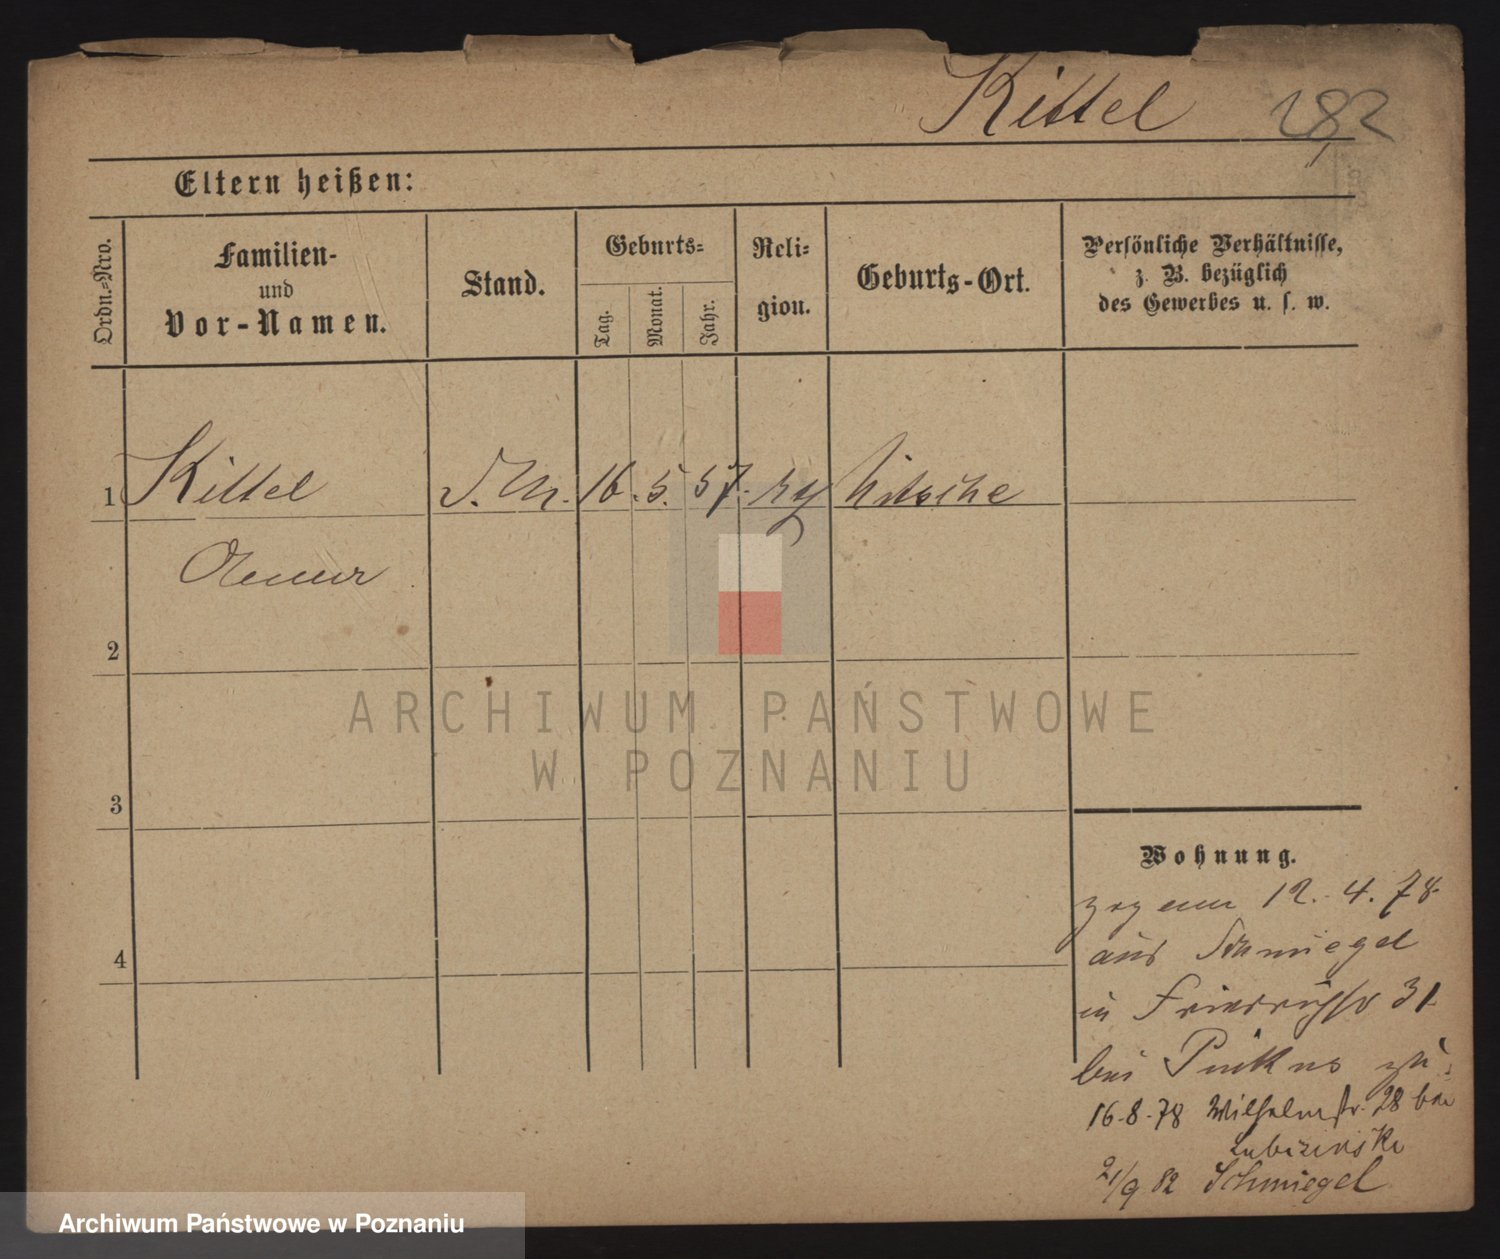 Kittel 282
Eltern heißen:
Ordn.=Nro.
Familien-
und
Vor-Namen.
Stand.
Geburts=
Tag.
Monat.
Jahr.
Reli=
gion.
Geburts-Ort.
Persönliche Verhältnisse,
z. B. bezüglich
des Gewerbes u. s. w.
1 Kittel 16. 5. 57. Nitsche
2
3
4
Wohnung.
12. 4. 78.
aus Schmiegel
in Friedrichstr 31
bei Pinkus zu.
16-8-78 Wilhelmstr. 28 bei
21/9 82 Schmiegel
ARCHIWUM PAŃSTWOWE
W POZNANIU
Archiwum Państwowe w Poznaniu